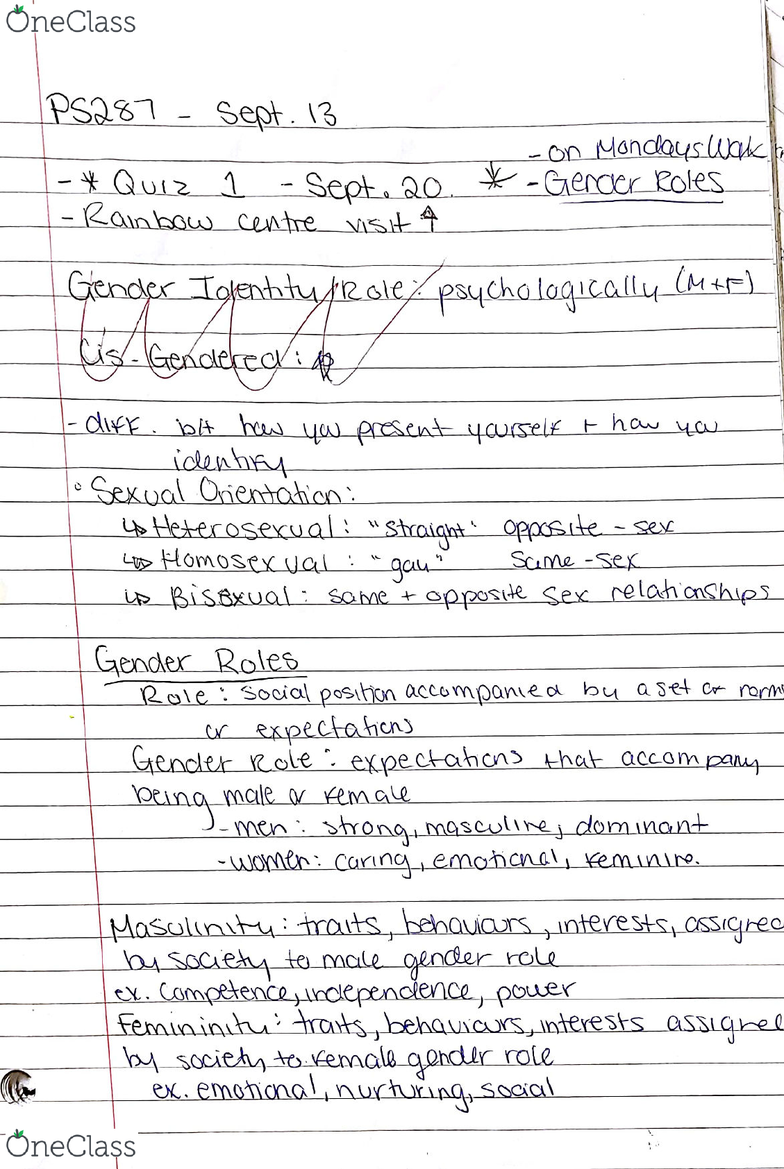 OneClass
PS287 - Sept. 13
- on Mondays Walk
- * Quiz 1 - Sept. 20. * - Gender Roles
- Rainbow centre visit ↑
Gender Identity/Role: psychologically (M+F)
Cis-Gendered:
- diff. b/t how you present yourself + how you
identify
° Sexual Orientation:
↳ Heterosexual: "straight" opposite-sex
↳ Homosexual: "gay" same-sex
↳ Bisexual: same + opposite sex relationships
Gender Roles
Role: social position accompanied by a set of norm
or expectations
Gender Role: expectations that accompany
being male or female
- men: strong, masculine, dominant
- women: caring, emotional, feminine.
Masulinity: traits, behaviours, interests, assigned
by society to male gender role
ex. competence, independence, power
Femininity: traits, behaviours, interests assigned
by society to female gender role
ex. emotional, nurturing, social
OneClass